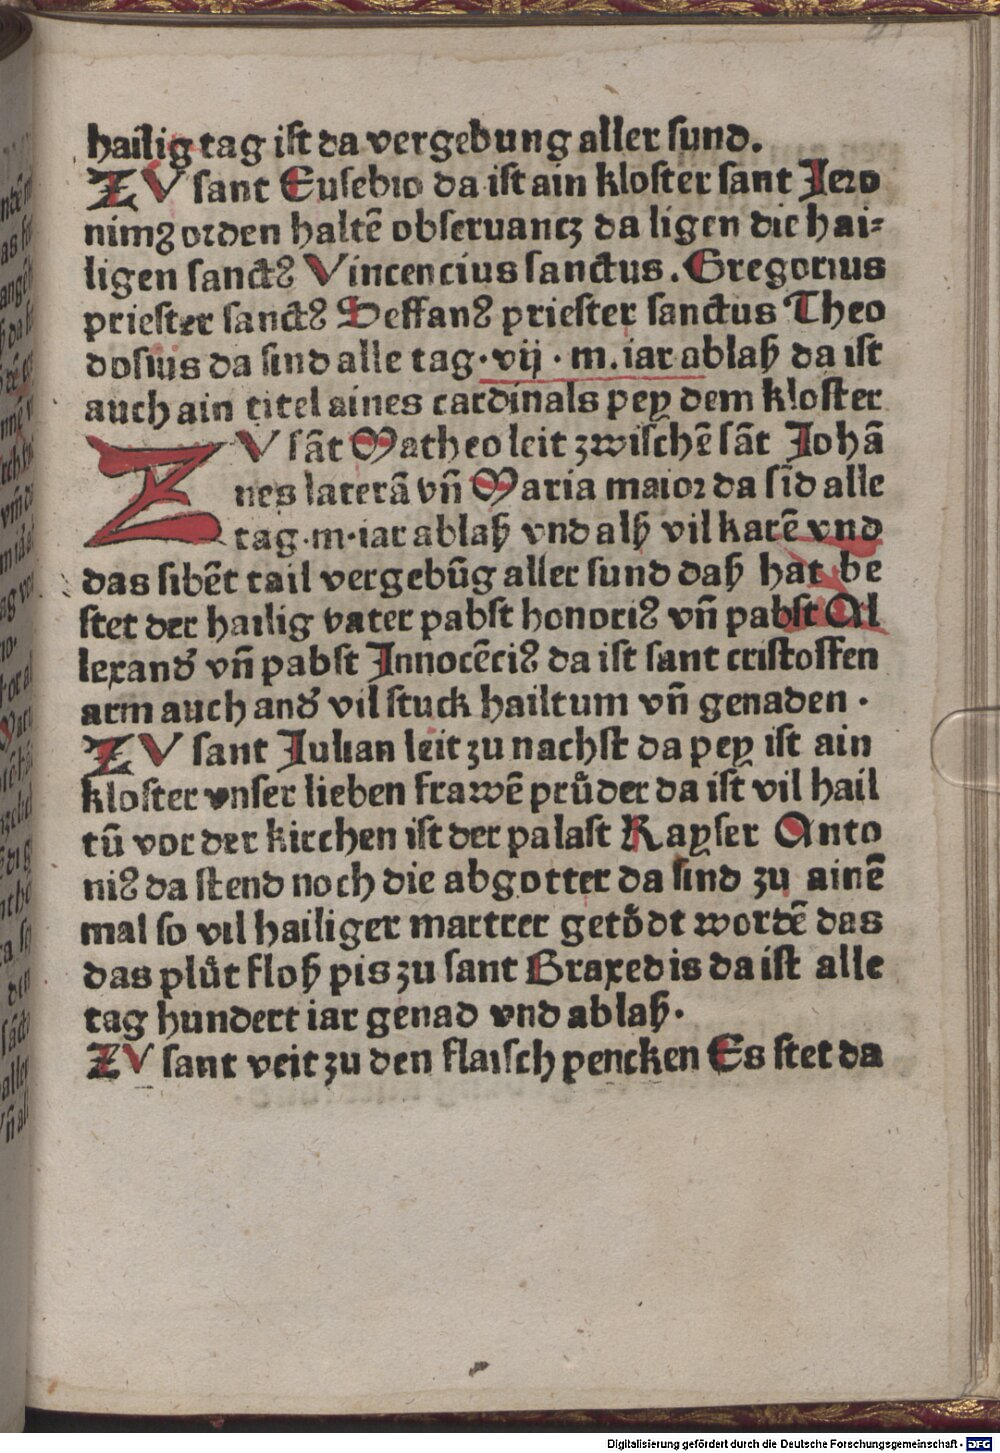 hailig tag ist da vergebung aller sund.
ZV sant Eusebio da ist ain kloster sant Jero
nimꝰ orden haltē obseruancz da ligen die hai-
ligen sanctꝰ Vincencius sanctus. Gregorius
priester sanctꝰ Steffanꝰ priester sanctus Theo
dosius da sind alle tag·vij·m.iar ablaß da ist
auch ain titel aines cardinals pey dem kloster
ZV sāt Matheo leit zwischē sāt Johā
nes laterā vn̄ Maria maior da sīd alle
tag·m·iar ablaß vnd alß vil karē vnd
das sibēt tail vergebūg aller sund daß hat be
stet der hailig vater pabst honoriꝰ vn̄ pabst Al
lexand̕ vn̄ pabst Innocēciꝰ da ist sant cristoffen
arm auch and̕ vil stuck hailtum vn̄ genaden ·
ZV sant Julian leit zu nachst da pey ist ain
kloster vnser lieben frawē pruͤder da ist vil hail
tū vor der kirchen ist der palast Kayser Anto
niꝰ da stend noch die abgotter da sind zu ainē
mal so vil hailiger martrer getoͤdt wordē das
das pluͤt floß pis zu sant Braxedis da ist alle
tag hundert iar genad vnd ablaß.
ZV sant veit zu den flaisch pencken Es stet da
Digitalisierung gefördert durch die Deutsche Forschungsgemeinschaft - DFG